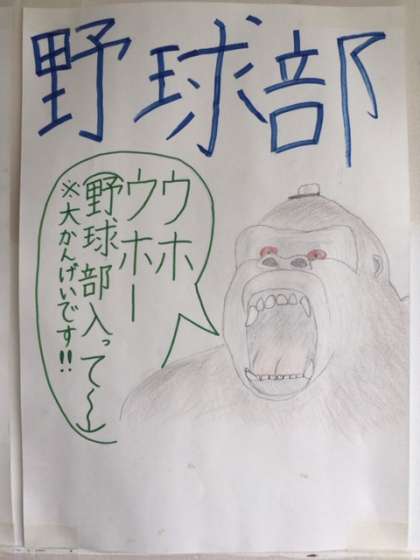 野球部
ウホ
ウホー
(野球部入って〜)
※大かんげいです!!